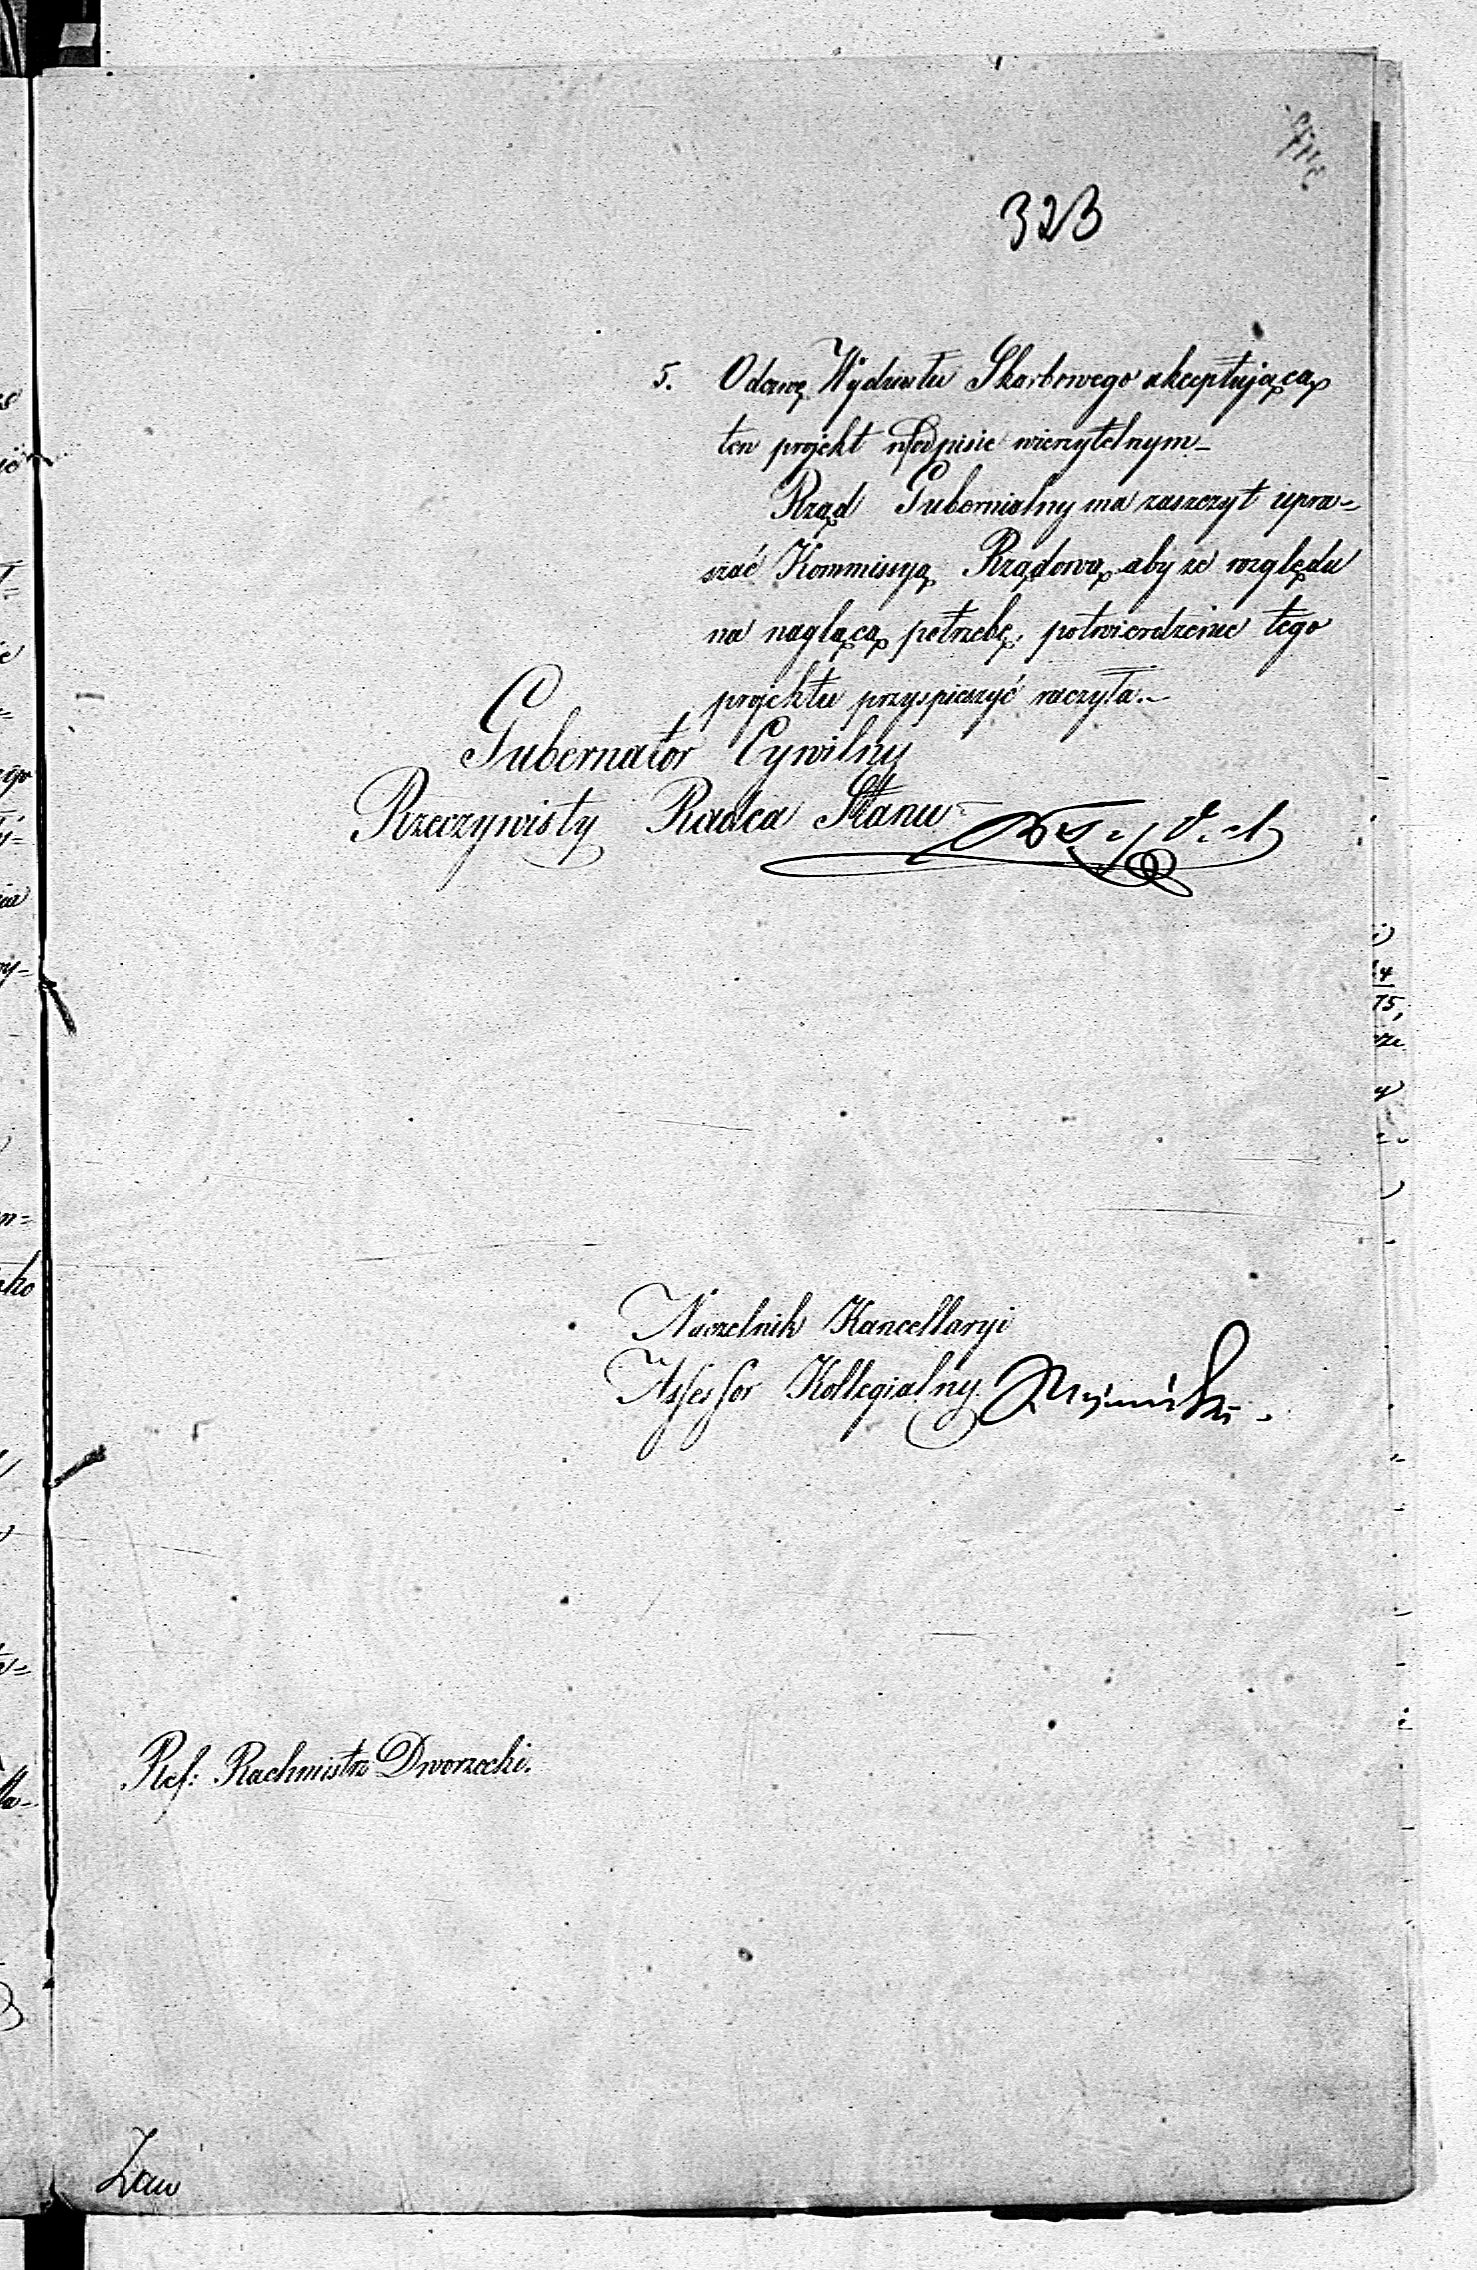 323
5. Odezwę Wydziału Skarbowego akceptującą
ten projekt w odpisie wierzytelnym_
Rząd Gubernialny ma zaszczyt upra-
szać Kommissyą Rządową, aby ze względu
na naglącą potrzebę, potwierdzenie tego
projektu przyspieszyć raczyła._
Gubernator Cywilny
Rzeczywisty Radca Stanu
Naczelnik Kancellaryi
Assessor Kollegialny
Ref: Rachmistrz Dworzecki.